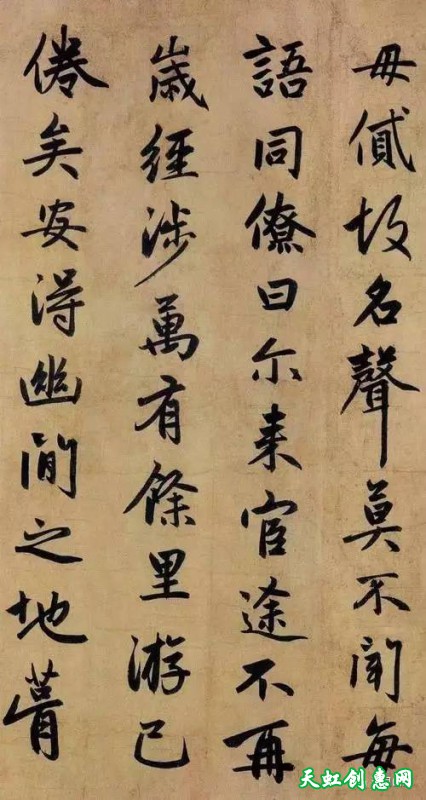 毋貸故名聲莫不聞每
語同僚曰尓来官途不再
歲經涉萬有餘里游已
倦矣安得幽閒之地
天虹创惠网